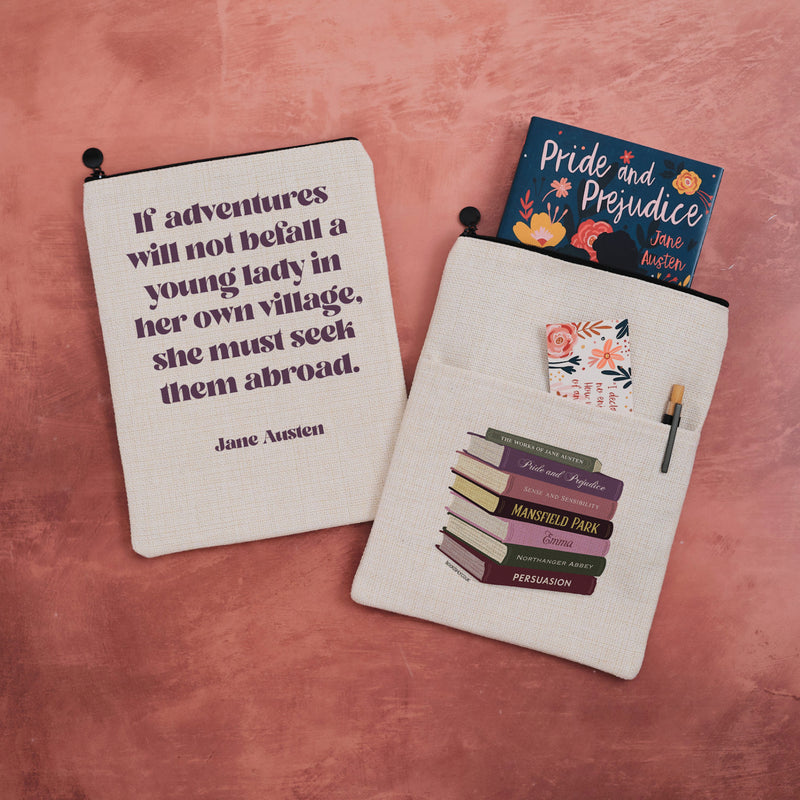 If adventures
will not befall a
young lady in
her own village,
she must seek
them abroad.
Jane Austen
Pride and
Prejudice
Jane
Austen
THE WORKS OF JANE AUSTEN
Pride and Prejudice
SENSE AND SENSIBILITY
MANSFIELD PARK
Emma
NORTHANGER ABBEY
PERSUASION